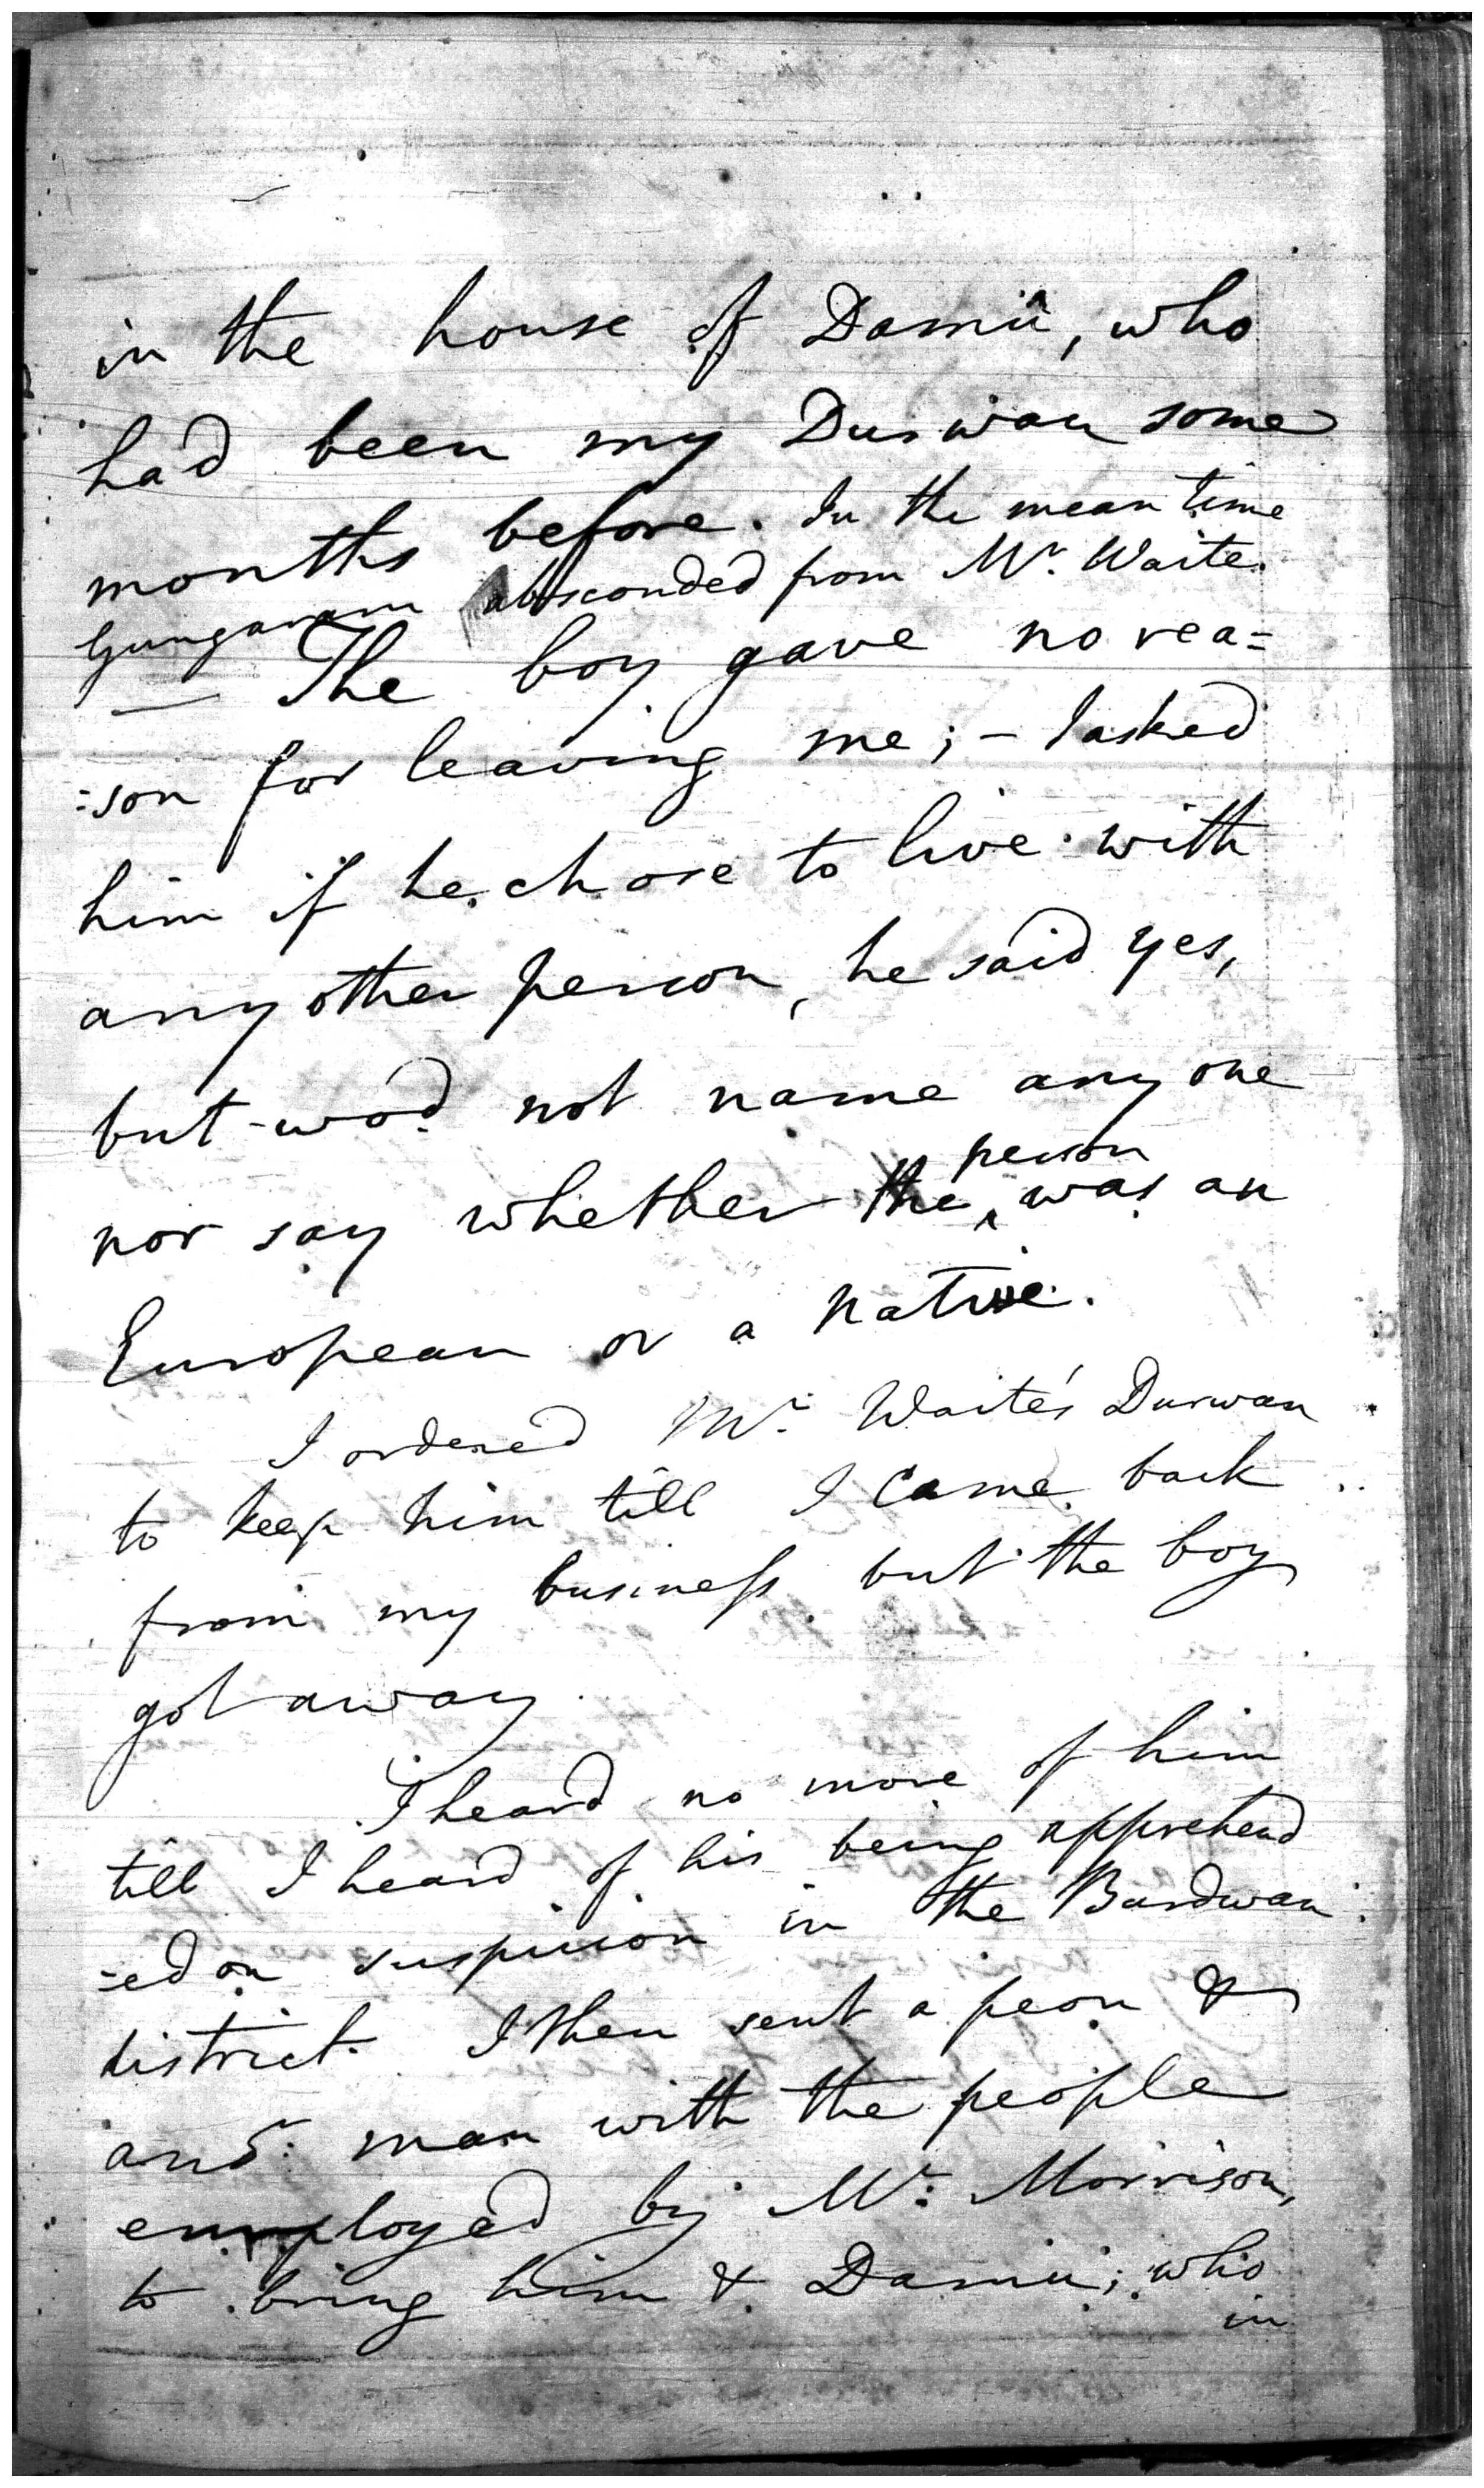 in the house of Damû, who
had been my Durwan some
months before. In the mean time
Gungaram absconded from Mr. Waite.
— The boy gave no rea=
=son for leaving me; - I asked
him if he chose to live with
any other person, he said yes,
but wod. not name any one
person
nor say whether the ‸ was an
European or a native.
I ordered Mr. Waite's Durwan
to keep him till I came back
from my business but the boy
got away.
I heard no more of him
till I heard of his being apprehend
-ed on suspicion in the Burdwan
district. I then sent a peon &
man with the people
employed by Mr. Morrison,
to bring him & Damû; who
in